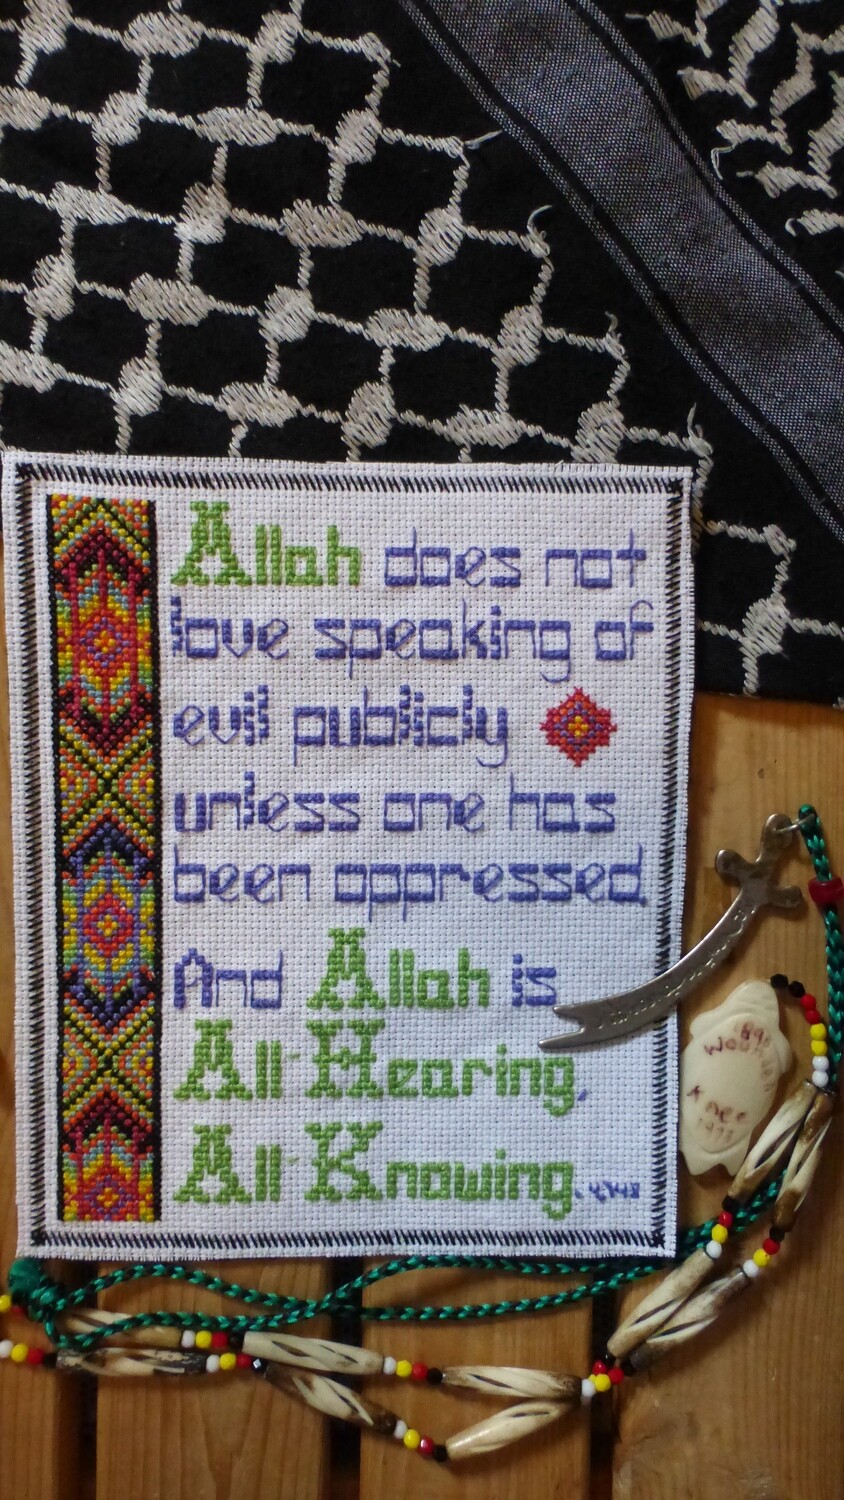 Allah does not
love speaking of
evil publicly
unless one has
been oppressed.
And Allah is
All-Hearing,
All-Knowing. 4:148
1890
Wounded
Knee
1973